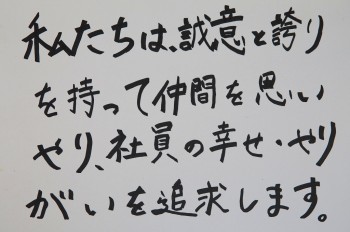 私たちは、誠意と誇り
を持って仲間を思い
やり、社員の幸せ・やり
がいを追求します。